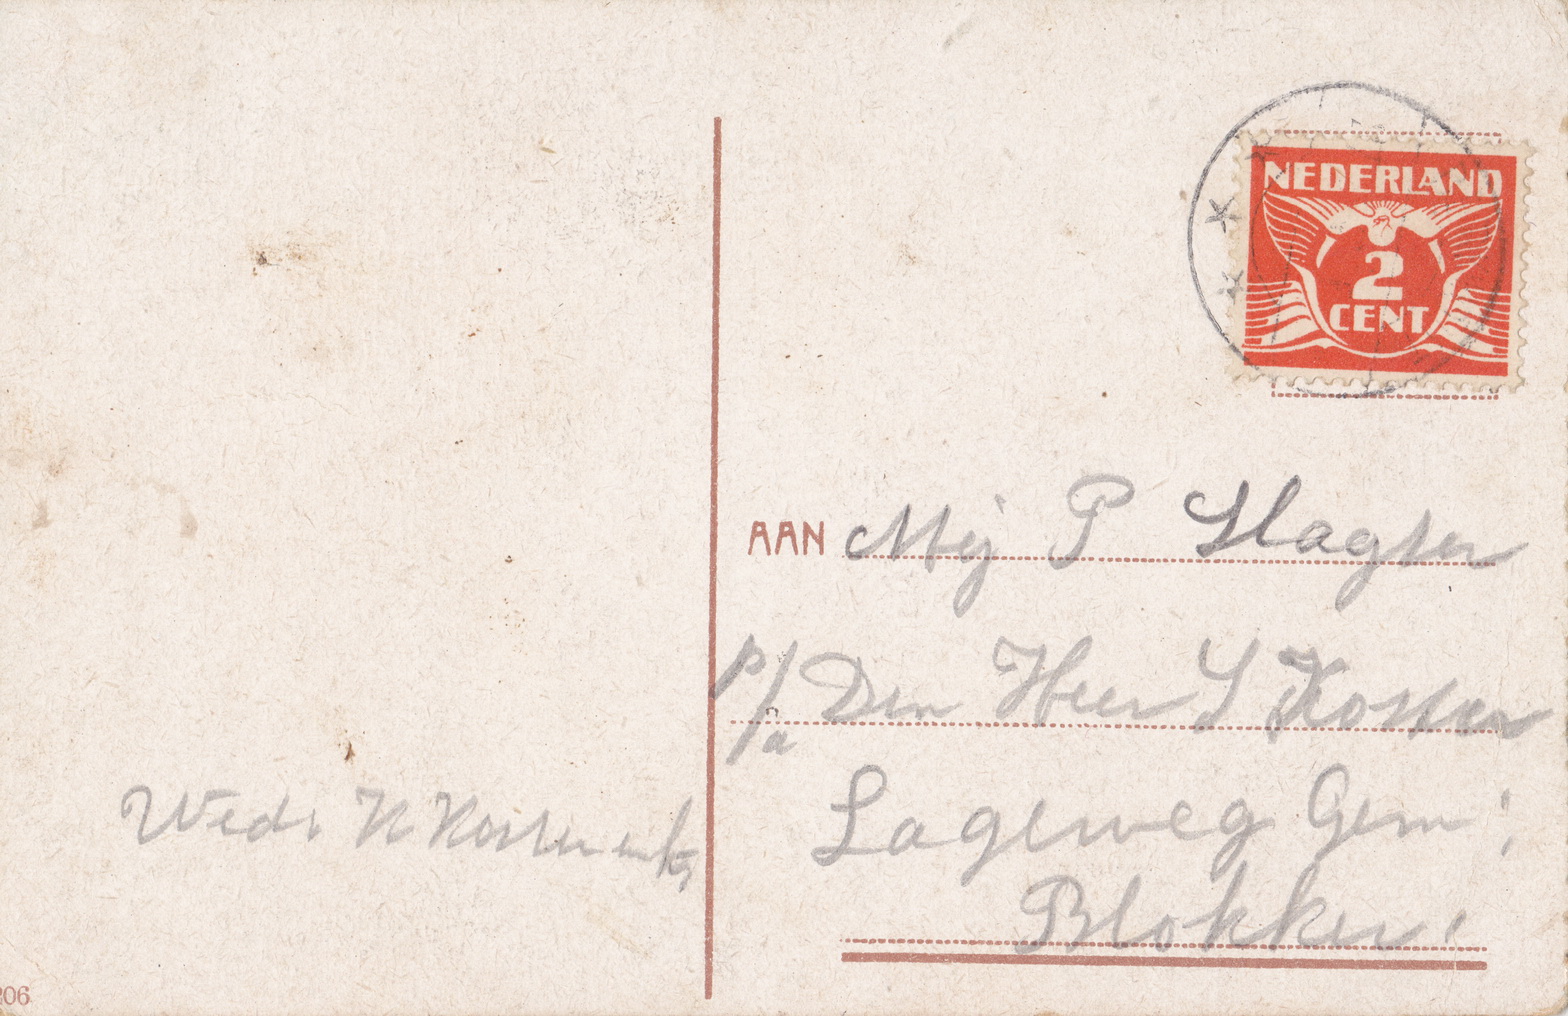 NEDERLAND
2
CENT
AAN Mej P Slagter
p/a Den Heer Y Koster
Lageweg Gem;
Blokker
Wed. K Koster
206